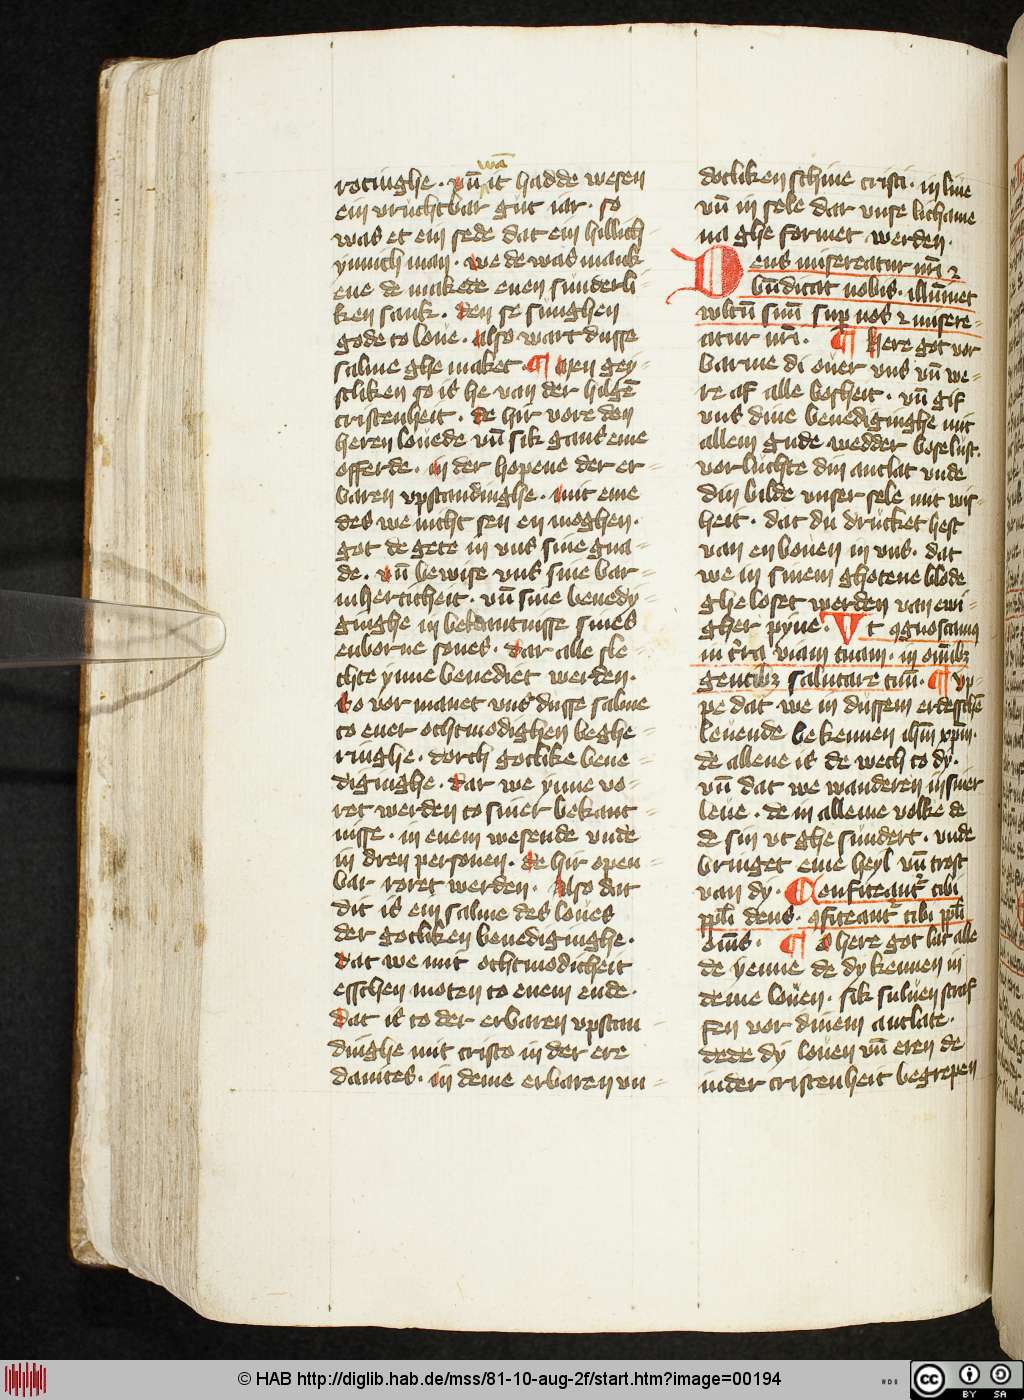 wan
rotinghe · vn̄ it hadde wesen
ein vruchtbar gut iar · so
was et ein sede dat ein hillich-
ynnich man · we de was mank
ene de makede enen sunderli-
ken sank · den se sunghen
gode to loue · also wart dusse
salme ghe maket · ¶ Men gey-
stliken so is he van der hilgē
cristenheit · de hir vore den
heren louede vn̄ sik gans eme
offerde · in der hopene der er-
baren vpstandinghe · mit eme
des we nicht sen en moghen ·
got de gete in vns sine gna-
de · vn̄ bewise vns sine bar-
mherticheit · vn̄ sine benedy-
ginghe in bekantnisse sines
enborne sones · dar alle sle-
chte ynne benediet werden ·
to vor manet vns dusse salme
to ener othmodighen beghe-
ringhe · dorch gotlike bene-
diginghe · dar we ynne vo-
ret werden to siner bekant-
nisse · in enem wesende vnde
in dren personen · de hir open-
bar roret werden · Also dat
dit is ein salme des loues
der gotliken benediginghe ·
dat we mit othmodicheit
esschen moten to enem ende ·
dat is to der erbaren vpstan-
dinghe mit cristo in der ere
dauites · in deme erbaren vn-
dotliken schine cristi · in liue
vn̄ in sele dar vnse lichame
na ghe formet werden ·
Deus misereatur nr̄i ⁊
bn̄dicat nobis · illumet
vultū suū sup̄ nos ⁊ misere-
atur nr̄i · ¶ Here got vor
barme di ouer vns vn̄ we-
re af alle bosheit · vn̄ gif
vns dine benediginghe mit
allem gude wedder bose lust ·
vorluchte din antlat vnde
din bilde vnser sele mit wis-
heit · dat du drucket hest
van en bouen in vns · dat
we in sinem ghotene blode
ghe loset werden van ewi-
gher pyne · Vt ꝯgnoscamꝰ
in t̄ra viam tuam · in om̄ibꝫ
gentibꝫ salutare tuū · ¶ Vp-
pe dat we in dussem erdesschē
leuende bekennen ihm̄ xpm̄ ·
de allene is de wech to dy ·
vn̄ dat we wanderen in siner
leue · de in alleme volke de
de sin vt ghe sundert · vnde
bringet eme heyl vn̄ trost
van dy · Confiteant᷑ tibi
ppl̄i deus · ꝯfiteant᷑ tibi ppl̄i
om̄s · ¶ O here got lat alle
de yenne de dy kennen in
deme louen · sik suluen straf-
fen vor dinem antlate ·
dede dy louen vn̄ eren de
in der cristenheit begrepen
© HAB http://diglib.hab.de/mss/81-10-aug-2f/start.htm?image=00194
HAB
cc
BY SA